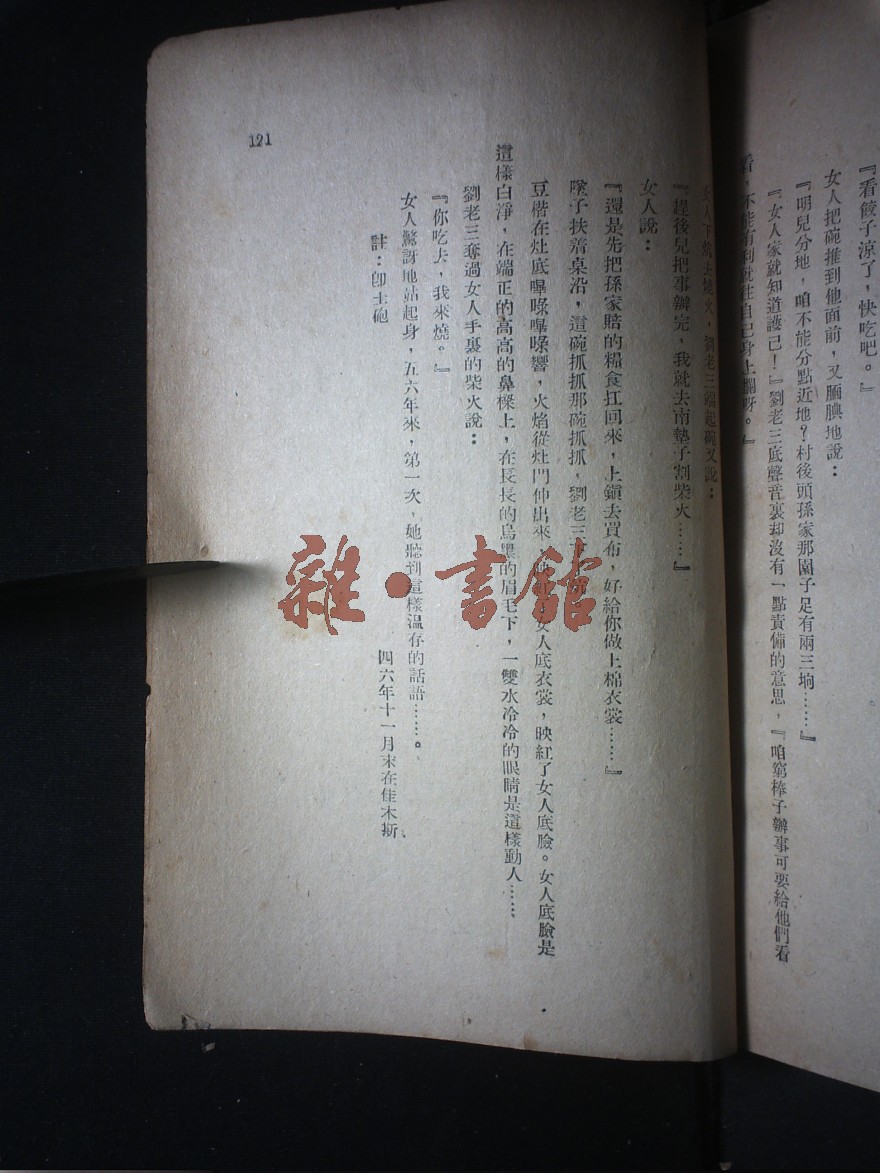 『看餃子涼了，快吃吧。』
女人把碗推到他面前，又腼腆地說：
『明兒分地，咱不能分點近地？村後頭孫家那園子足有兩三垧……』
『女人家就知道護己！』劉老三底聲音裏却沒有一點責備的意思，『咱窮棒子辦事可要給他們看
看，不能有利就往自己身上攔呀。』
女人下炕去燒火，劉老三端起碗又說：
『趕後兒把事辦完，我就去南墊子割柴火……』
女人說：
『還是先把孫家賠的糧食扛回來，上鎮去買布，好給你做上棉衣裳……』
墜子扶着桌沿，這碗抓抓那碗抓抓，劉老三
豆楷在灶底嗶喙嗶喙響，火焰從灶門伸出來，女人底衣裳，映紅了女人底臉。女人底臉是
這樣白淨，在端正的高高的鼻樑上，在長長的烏黑的眉毛下，一雙水冷冷的眼睛是這樣動人……
劉老三奪過女人手裏的柴火說：
『你吃去，我來燒。』
女人驚訝地站起身，五六年來，第一次，她聽到這樣溫存的話語……。
四六年十一月末在佳木斯、
註：卽土砲
121
雜·書館